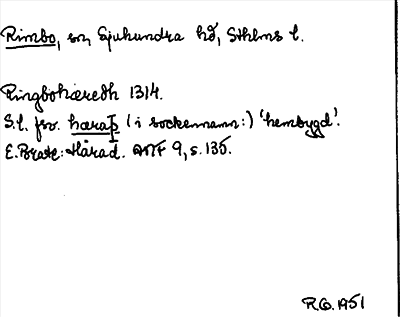 Rimbo, sn, Sjuhundra hd, Sthlms l.
Ringbohæredh 1314.
S.l. fsv. hæraþ (i sockennamn:) 'hembygd'.
E. Brate: Härad. ANF 9, s. 135.
R.O. 1951